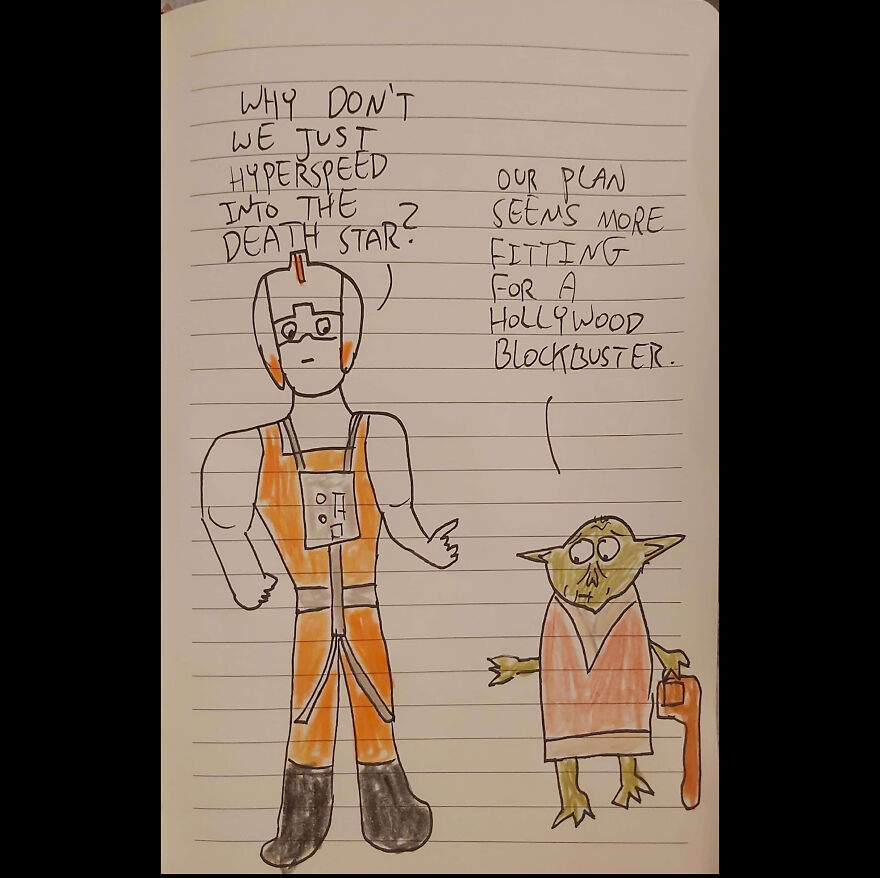 WHY DON'T
WE JUST
HYPERSPEED
INTO THE
DEATH STAR?
OUR PLAN
SEEMS MORE
FITTING
FOR A
HOLLYWOOD
BLOCKBUSTER.